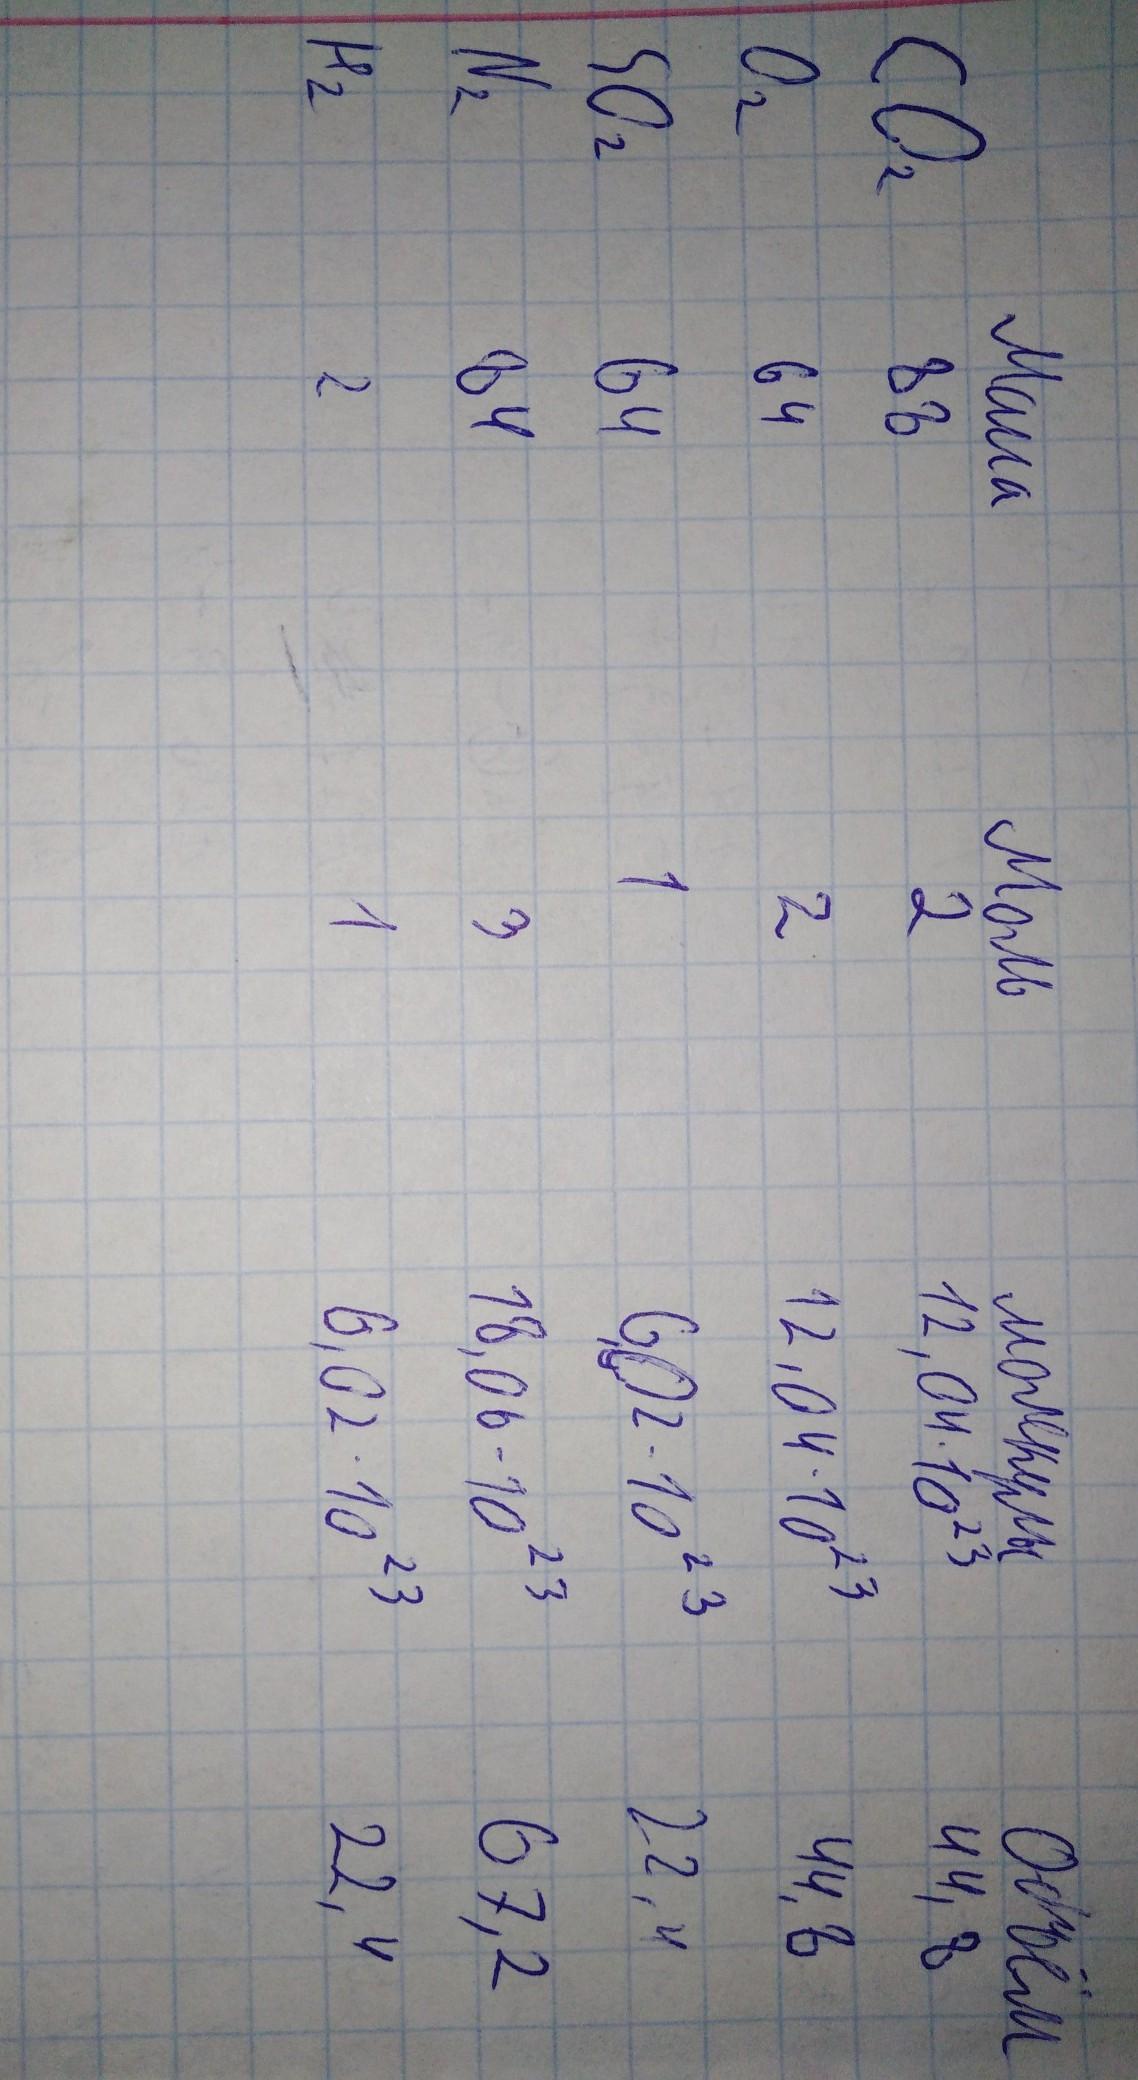 Масса Моль молекулы Объём
CO2 88 2 12,04·10²³ 44,8
O2 64 2 12,04·10²³ 44,8
SO2 64 1 6,02·10²³ 22,4
N2 84 3 18,06·10²³ 67,2
H2 2 1 6,02·10²³ 22,4